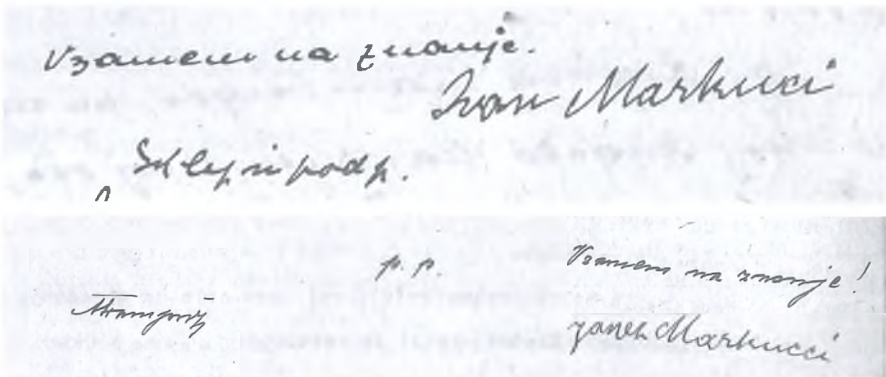 Vzamem na znanje.
Ivan Markucci
Sklep in podp.
p. p.
Vzamem na znanje!
Janek Markucci